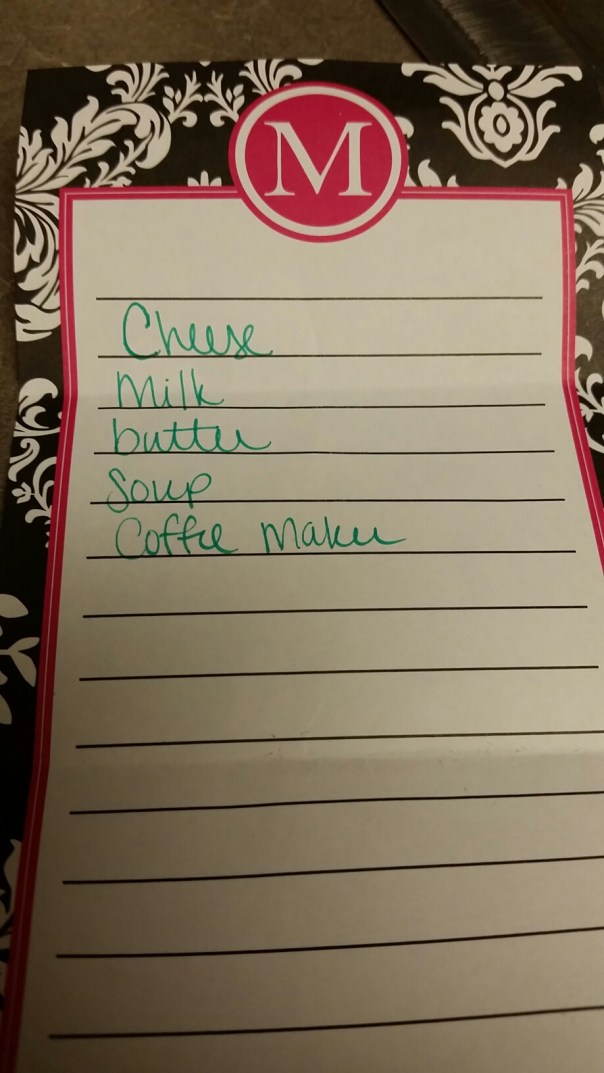 M
Cheese
Milk
butter
Soup
Coffee Maker